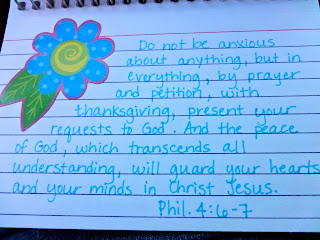 Do not be anxious
about anything, but in
everything, by prayer
and petition, with
thanksgiving, present your
requests to God. And the peace
of God, which transcends all
understanding, will guard your hearts
and your minds in Christ Jesus.
Phil. 4:6-7